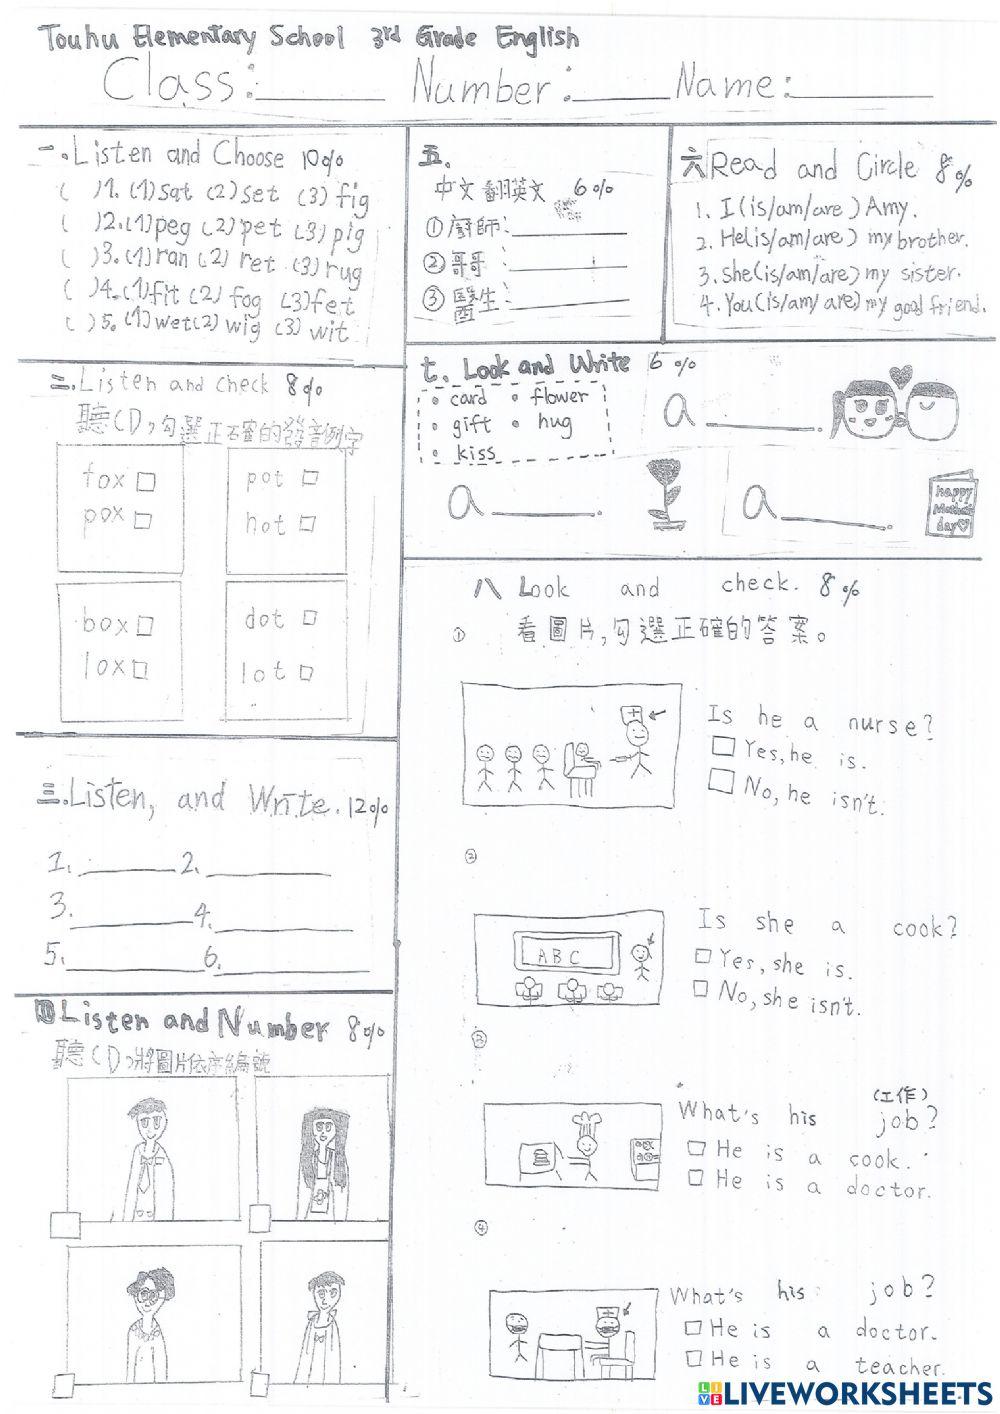 Touhu Elementary School 3rd Grade English
Class:______ Number:______ Name:______
一.Listen and Choose 10%
( )1. (1)sat (2)set (3) fig
( )2.(1)peg (2)pet (3)pig
( )3.(1)ran (2) ret (3)rug
( )4.(1)fit (2) fog (3)fet
( )5.(1)wet(2)wig (3) wit
二.Listen and check 8%
聽CD,勾選正確的發音例字
fox □
pox □
pot □
hot □
box □
lox □
dot □
lot □
三.Listen, and Write.12%
1.______2.______
3.______4.______
5.______6.______
四Listen and Number 8%
聽CD,將圖片依序編號
五.
中文翻英文 6%
①廚師:______
②哥哥:______
③醫生:______
六Read and Circle 8%
1. I(is/am/are)Amy.
2. He(is/am/are) my brother.
3. She(is/am/are) my sister.
4. You(is/am/are)my good friend.
七. Look and Write 6%
• card • flower
• gift • hug
• kiss
a______.
a______.
a______.
happy
Mother's
day
八 Look and check. 8%
看圖片,勾選正確的答案。
①
Is he a nurse?
□ Yes,he is.
□ No,he isn't.
②
ABC
Is she a cook?
□ Yes,she is.
□ No,she isn't.
③
(工作)
What's his job?
□ He is a cook.
□ He is a doctor.
④
What's his job?
□ He is a doctor.
□ He is a teacher.
LIVEWORKSHEETS